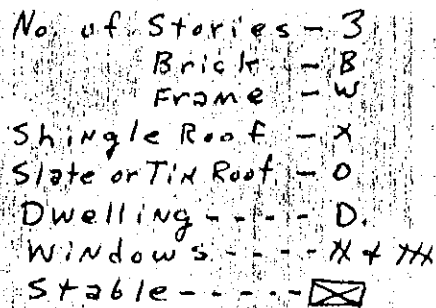 No. of Stories - 3
Brick - B
Frame - W
Shingle Roof - X
Slate or Tin Roof - O
Dwelling - - - - D.
Windows - - - -
Stable - - - - -